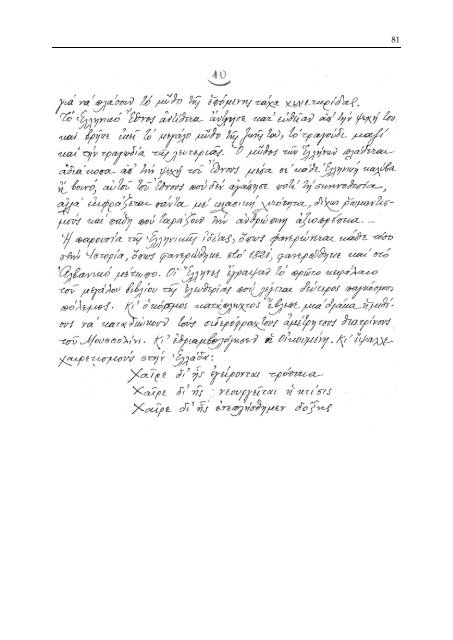 81
10
γιά νά πλάσουν τό μῦθο τῆς ἑπόμενης τάχα χιλιετηρίδας.
Τό Ἑλληνικό Ἔθνος ἀντίθετα ἄντλησε κατ' εὐθεῖαν ἀπ' τήν ψυχή του
καί βρῆκε ἐκεῖ τό μεγάλο μῦθο τῆς ζωῆς του, τό τραγούδι μαζί
καί τήν τραγωδία τῆς λευτεριᾶς. Ὁ μῦθος τῶν Ἑλλήνων πλάθεται
ἀδιάκοπα ἀπ' τήν ψυχή τοῦ ἔθνους μέσα σέ κάθε Ἑλληνική καλύβα
ἤ βουνό, αὐτοῦ τοῦ ἔθνους πού δέν ἀγάπησε ποτέ τή
ἀλλά ἐκφράζεται πάντα μέ λιτότητα, δίχως ρωμαντισ-
μούς καί πάθη πού ταράζουν τήν ἀνθρώπινη ἀξιοπρέπεια. –
Ἡ παρουσία τῆς Ἑλληνικῆς ἰδέας, ὅπως φανερώνεται κάθε τόσο
στήν Ἱστορία, ὅπως φανερώθηκε στό 1821, φανερώθηκε καί στό
Ἀλβανικό μέτωπο. Οἱ Ἕλληνες ἔγραψαν τό πρῶτο κεφάλαιο
τοῦ μεγάλου βιβλίου τῆς ἐλευθερίας πού λέγεται δεύτερος παγκόσμιος
πόλεμος. Κι' ὁ κόσμος κατάπληκτος ἔβλεπε μιά δράκα ἡμιθέ-
ους νά καταδιώκουν τούς σιδερόφραχτους ἀμέτρητους στρατιώτες
τοῦ Μουσσολίνι. Κι' ἐθριαμβολόγησεν ἡ Οἰκουμένη. Κι' ἔψαλλε
χαιρετισμούς στήν Ἑλλάδα:
Χαῖρε δι' ἧς ἐγείρονται τρόπαια
Χαῖρε δι' ἧς νεουργεῖται ἡ κτίσις
Χαῖρε δι' ἧς ἐνεπλήσθημεν δόξης